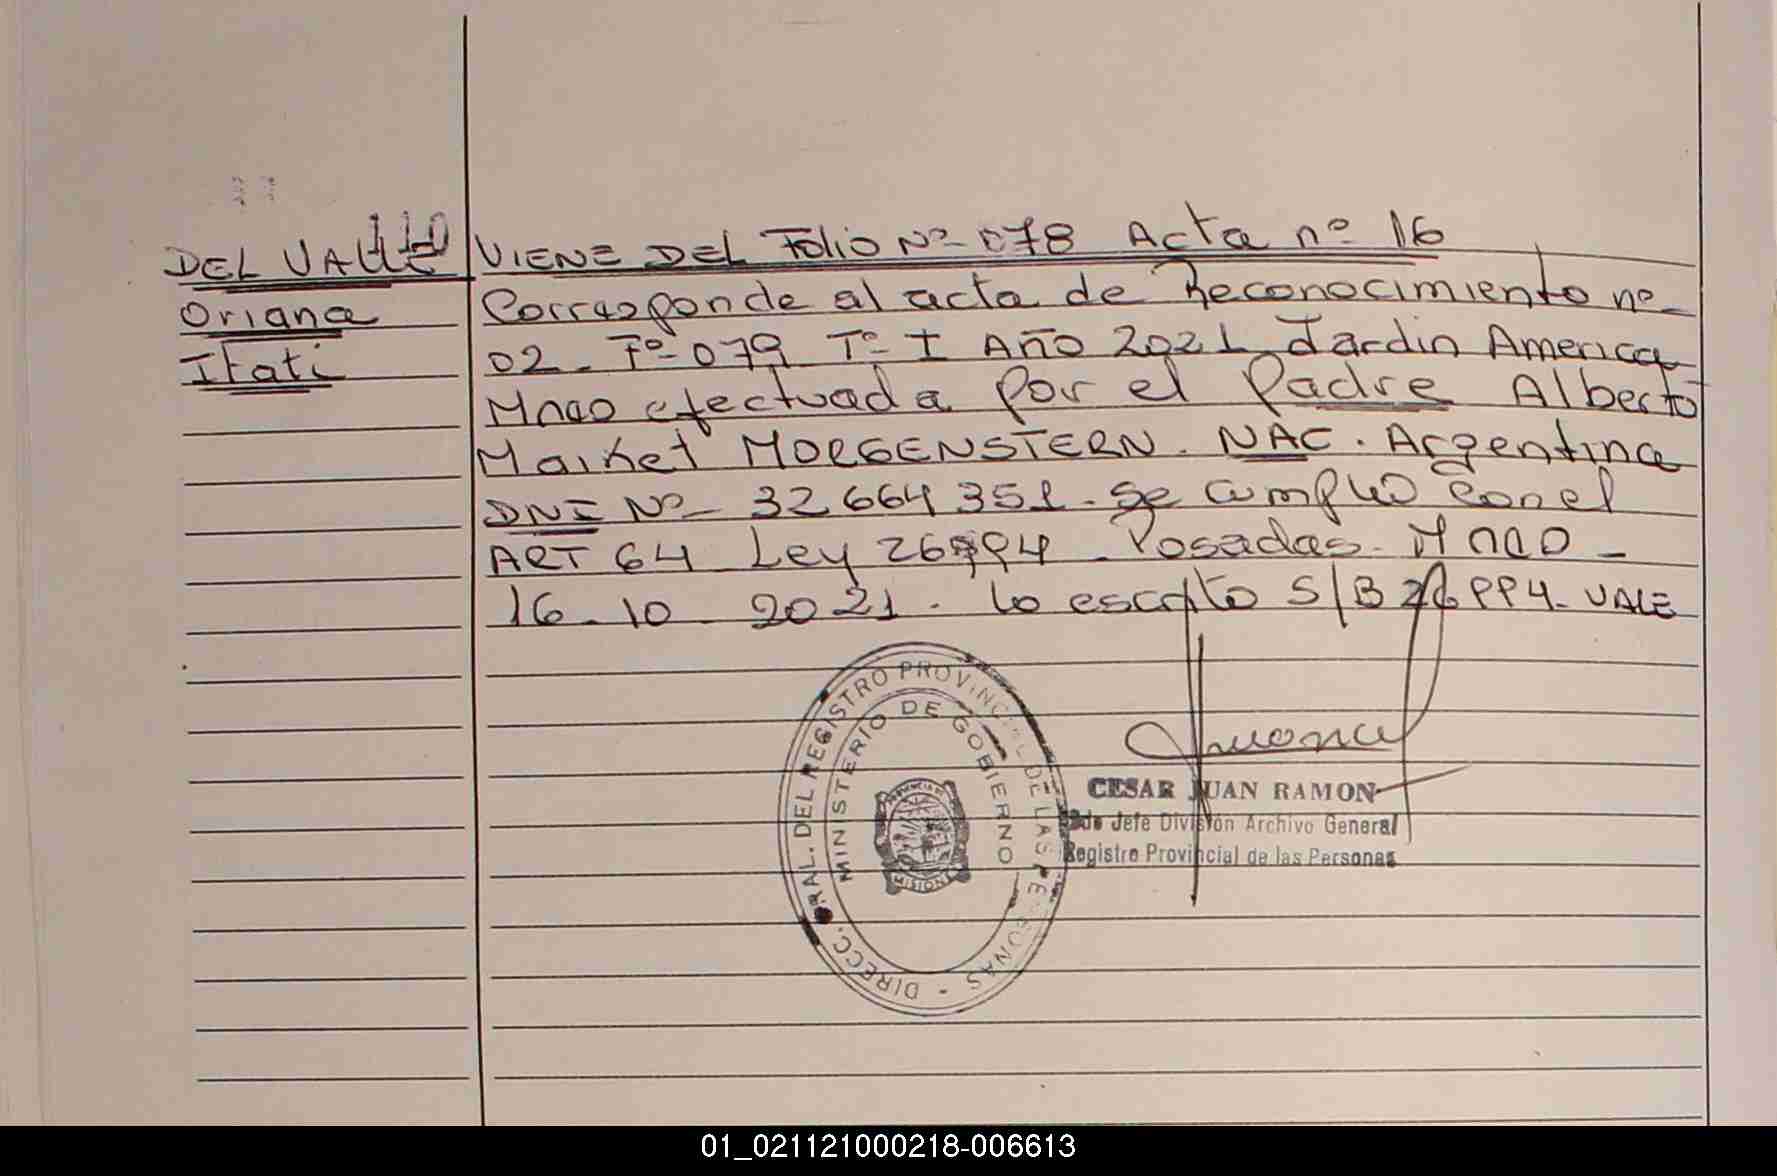 DEL VALLE
Oriana
Itati
VIENE DEL Folio Nº 078 Acta nº 16
Corresponde al acta de Reconocimiento nº
02. Fº 079 Tº I Año 2021 Jardin America
Mnes efectuada por el Padre Alberto
Maikel MORGENSTERN. NAC. Argentina
DNI Nº 32664351. Se cumplio con el
ART 64 Ley 26994. Posadas. Mnes
16. 10. 2021. lo escrito S/B 26994. VALE
DIRECC. GRAL. DEL REGISTRO PROVINCIAL DE LAS PERSONAS
MINISTERIO DE GOBIERNO
MISIONES
CESAR JUAN RAMON
2do Jefe División Archivo General
Registro Provincial de las Personas
01_021121000218-006613